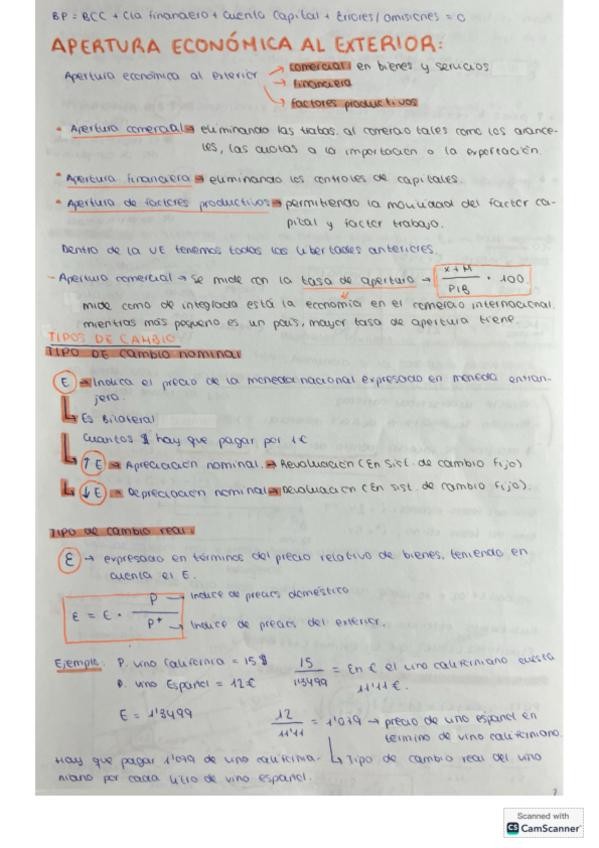 BP = BCC + Cta financiero + Cuenta Capital + Errores/omisiones = 0
APERTURA ECONÓMICA AL EXTERIOR:
Apertura económica al exterior → comercial: en bienes y servicios
→ financiera
→ factores productivos
• Apertura comercial → eliminando las trabas al comercio tales como los arance-
les, las cuotas a la importación o la exportación.
• Apertura financiera → eliminando los controles de capitales.
• Apertura de factores productivos → permitiendo la movilidad del factor ca-
pital y factor trabajo.
Dentro de la UE tenemos todas las libertades anteriores.
- Apertura comercial → se mide con la tasa de apertura → X+M / PIB · 100
mide como de integrada está la economía en el comercio internacional.
mientras más pequeño es un país, mayor tasa de apertura tiene.
TIPOS DE CAMBIO
TIPO DE cambio nominal
E → Indica el precio de la moneda nacional expresado en moneda extran-
jera.
↳ Es Bilateral
Cuantos $ hay que pagar por 1€
↳ ↑E → Apreciación nominal. → Revaluación (En sist. de cambio fijo)
↳ ↓E → Depreciación nominal → Devaluación (En sist. de cambio fijo).
TIPO de cambio real:
Ɛ → expresado en términos del precio relativo de bienes, teniendo en
cuenta el E.
Ɛ = E · P / P*
P → Indice de precios doméstico
P* → Indice de precios del exterior.
Ejemplo: P. vino California = 15$ 15 / 1'3499 = En € el vino californiano cuesta
11'11 €.
P. vino Español = 12€
E = 1'3499 12 / 11'11 = 1'079 → precio de vino español en
término de vino californiano.
Hay que pagar 1'079 de vino califorma- ↳ Tipo de cambio real del vino
niano por cada litro de vino español.
2
Scanned with
CS CamScanner